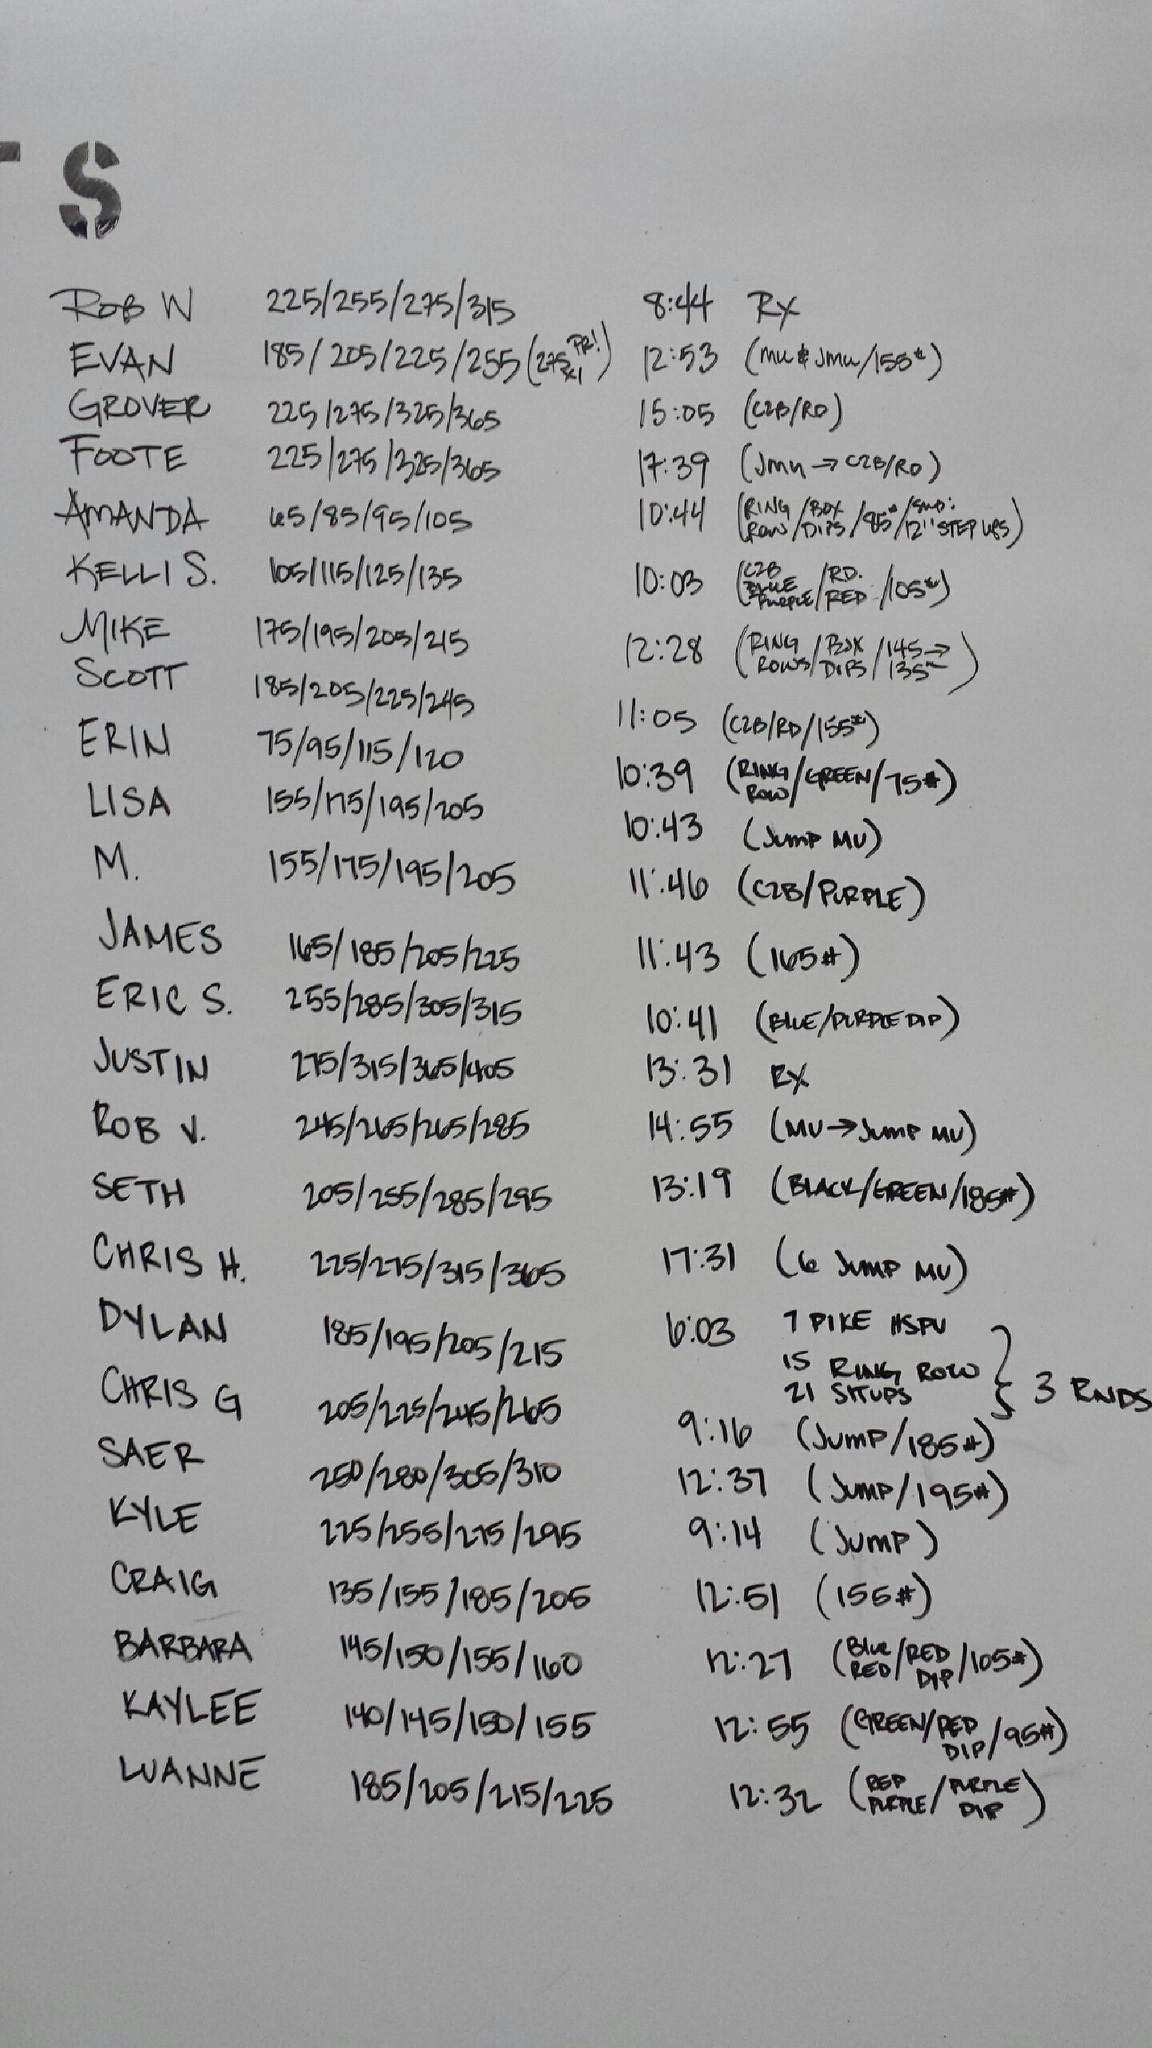 S
ROB W 225/255/275/315 8:44 RX
EVAN 185/205/225/255 (275 x1 PR!) 12:53 (MU & JMU/155#)
GROVER 225/275/325/365 15:05 (C2B/RD)
FOOTE 225/275/325/365 17:39 (JMU → C2B/RD)
AMANDA 65/85/95/105 10:44 (RING ROW/BOX DIPS/85#/SUB: 12" STEP UPS)
KELLI S. 105/115/125/135 10:03 (C2B BLUE PURPLE/RD. RED/105#)
MIKE 175/195/205/215 12:28 (RING ROWS/BOX DIPS/145→ 135#)
SCOTT 185/205/225/245 11:05 (C2B/RD/155#)
ERIN 75/95/115/120 10:39 (RING ROW/GREEN/75#)
LISA 155/175/195/205 10:43 (JUMP MU)
M. 155/175/195/205 11:46 (C2B/PURPLE)
JAMES 165/185/205/225 11:43 (165#)
ERIC S. 255/285/305/315 10:41 (BLUE/PURPLE DIP)
JUSTIN 275/315/365/405 13:31 RX
ROB V. 245/265/265/285 14:55 (MU→JUMP MU)
SETH 205/255/285/295 13:19 (BLACK/GREEN/185#)
CHRIS H. 225/275/315/365 17:31 (6 JUMP MU)
DYLAN 185/195/205/215 6:03 7 PIKE HSPU
15 RING ROW
21 SITUPS } 3 RNDS
CHRIS G 205/225/245/265 9:16 (JUMP/185#)
SAER 250/280/305/310 12:37 (JUMP/195#)
KYLE 225/255/275/295 9:14 (JUMP)
CRAIG 135/155/185/205 12:51 (155#)
BARBARA 145/150/155/160 12:27 (BLUE RED/RED DIP/105#)
KAYLEE 140/145/150/155 12:55 (GREEN/RED DIP/95#)
LUANNE 185/205/215/225 12:32 (RED PURPLE/PURPLE DIP)